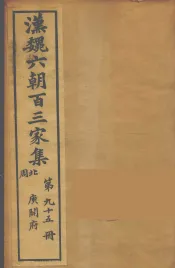 漢魏六朝百三家集
北周
第九十五冊
庾開府